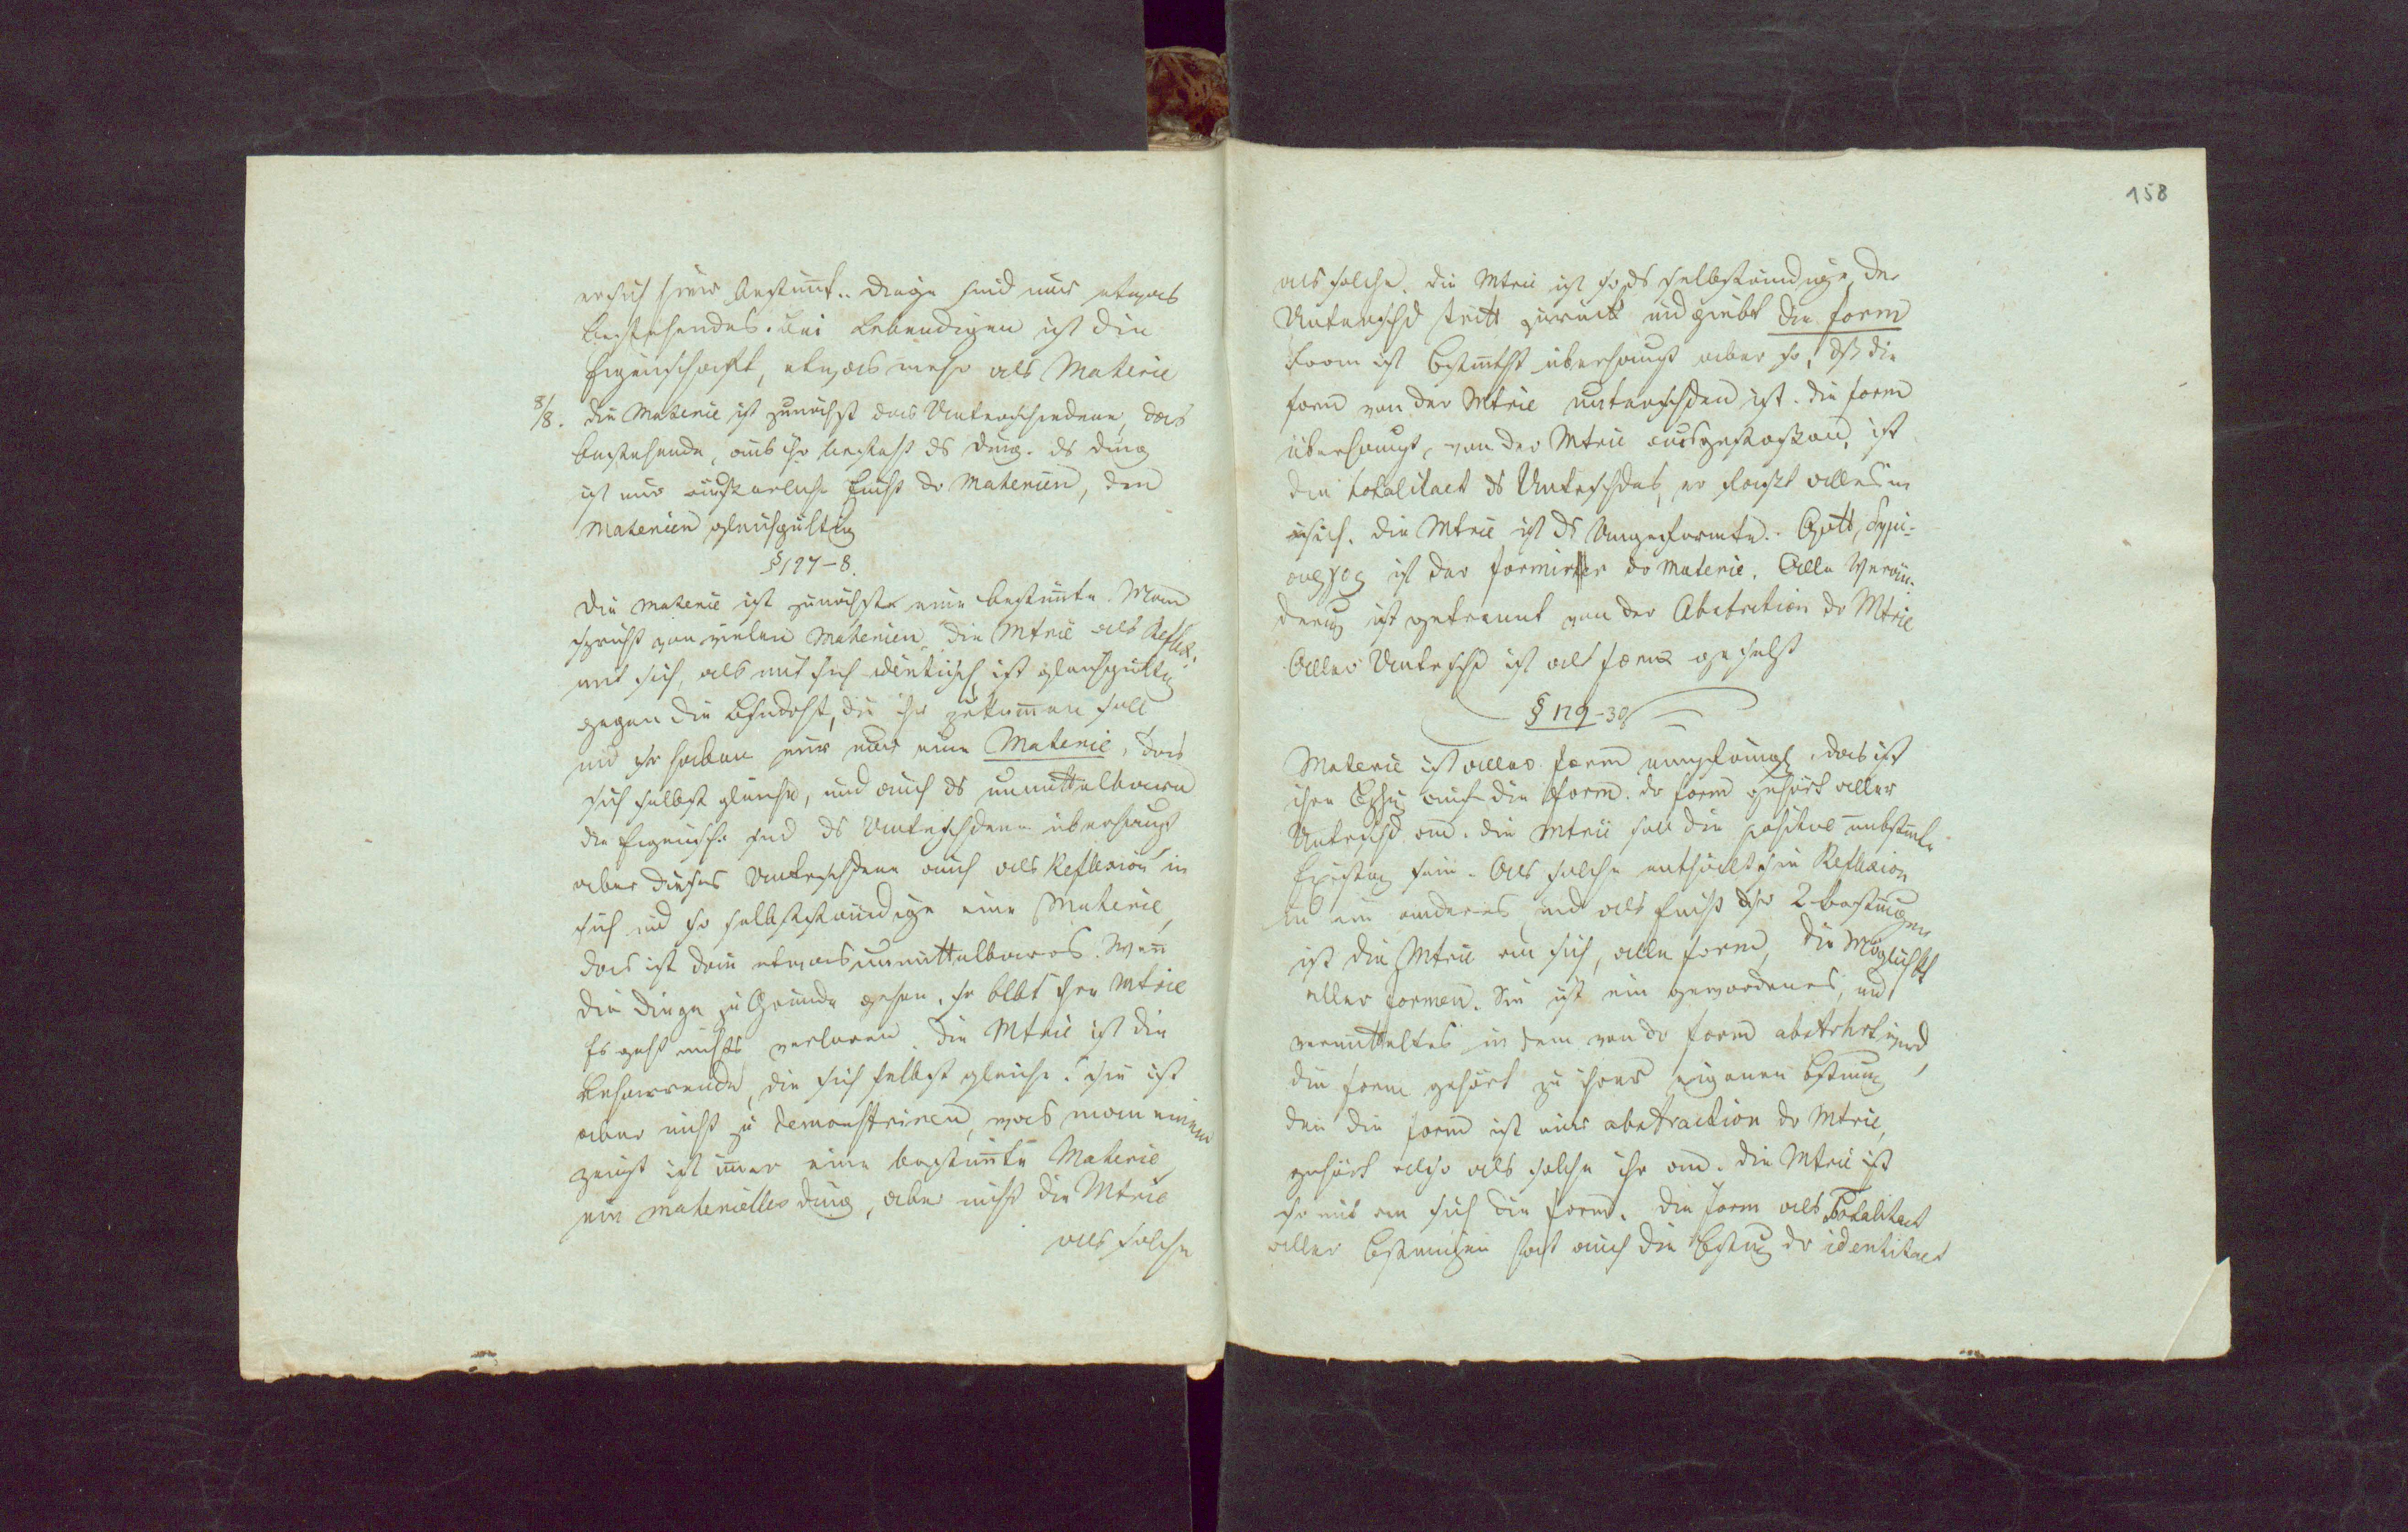 ersich hier bestimt.. Dinge sind nur etwas
bestehendes. Bei Lebendigen ist die
Eigenschaft, etwas mehr als Materie
8/8. Die Materie ist zunächst das Unterschiedene, das
bestehende, aus ihr besteht ds Ding. ds Ding
ist nur äusserliche Einht dr Materien, den
Materien gleichgültig
§ 127-8.
Die Materie ist zunächst eine bestimte. Man
spricht von vielen Materien. Die Mtrie als Reflex.
mit sich, als mit sich identisch ist gleichgültig
gegen die, die ihr zukommen soll
und so haben wir nur eine Materie, das
sich selbst gleiche, und auch ds unmittelbare
die Eigensch. sind ds Unterschdene überhaupt
aber dieses Unterschdene auch als Reflexion in
sich und so selbstständige eine Materie,
das ist dann etwas unmittelbares. Wen
die Dinge zu Grunde gehen, so blbt ihre Mtrie
Es geht nichts verloren. Die Mtrie ist die
beharrende, die sich selbst gleiche. Sie ist
aber nicht zu demonstriren, was man einem
zeigt ist imer eine bestimte Materie
ein materielles Ding, aber nicht die Mtrie
als solche
158
als solche. Die Mtrie ist so ds selbständige, der
Unterschd tritt zurück und giebt die Form
Form ist Bestmtht überhaupt aber so, dß die
Form von der Mtrie unterschden ist. Die Form
überhaupt, von der Mtrie ausgestossen, ist
die Totalitaet ds Unterschdes, er fasst alles in
sich. Die Mtrie ist ds Ungeformte.. Gott,
ist der formirer dr Materie. Alle Verän-
derung ist getrennt von der Abstraction dr Mtrie
Aller Unterschd ist als Form gesetzt
§ 129-30
Materie ist aller Form empfängl, das ist
ihre Bzhg auf die Form. dr Form gehört aller
Unterschd an. Die Mtrie soll die positive unbstmte
Existenz sein. Als solche enthält sie Reflexion
in ein anderes und als Einht dsr 2 Bestimungen
ist die Mtrie an sich, alle Form, die Möglichkt
aller Formen. Sie ist ein gewordenes, und
vermitteltes in dem von dr Form abstrhrt wird,
die Form gehört zu ihrer eigenen Bstimung
den die Form ist eine abstraction dr Mtrie,
gehört also als solche ihr an. Die Mtrie ist
so mit an sich die Form. Die Form als Totalitaet
aller Bstimungen hat auch die Bstmg dr identitaet